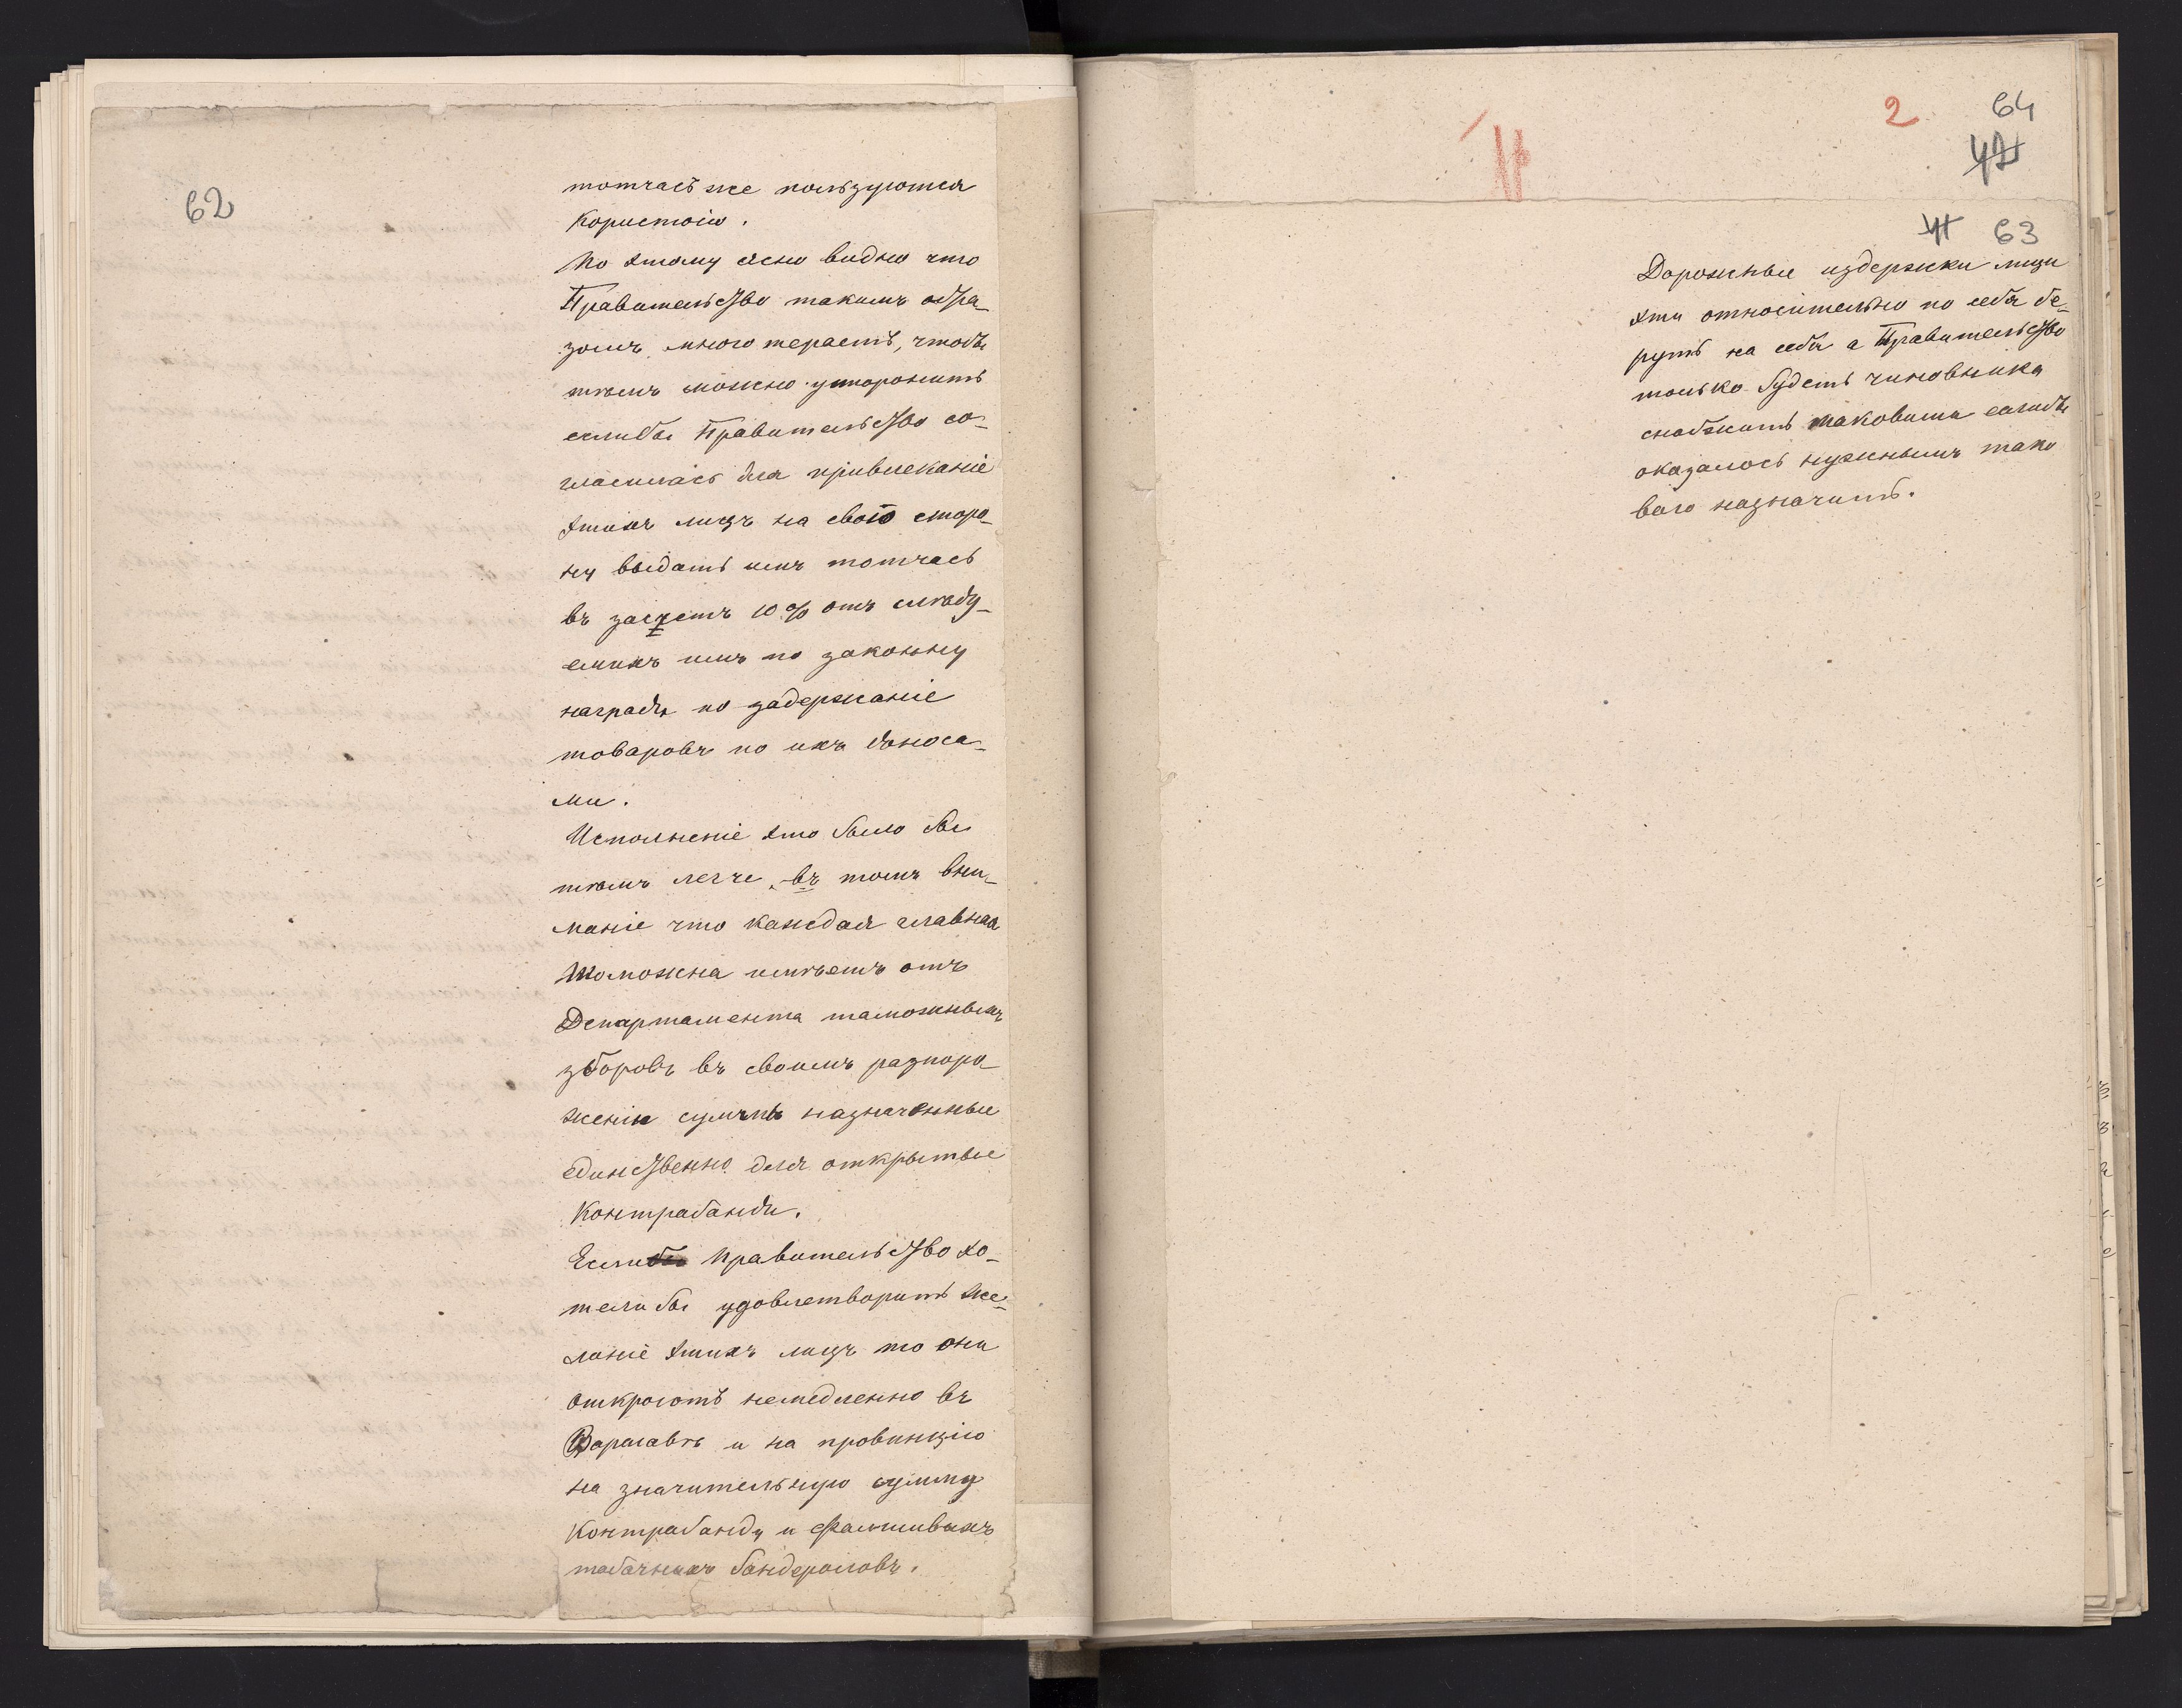 62
тотчасъ же пользуются
користію.
По этому ясно видно что
Правительство такимъ обра-
зомъ много теряетъ, чтобы
тѣмъ можно устороніть
еслибы Правительство со-
гласилась для привлеканіе
этихъ лицъ на свою сторо-
ну выдать имъ тотчасъ
въ засчетъ 10% отъ слѣду-
емихъ имъ по законну
награды по задержаніе
товаровъ по ихъ доноса-
ми.
Исполненіе это было бы
тѣмъ легче, въ томъ вни-
маніе что каждая главная
Таможна имѣетъ отъ
Департамента таможныхъ
зборовъ въ своимъ разпоря-
женіи суммы назначенные
единственно для открытые
контрабанди.
Если Правительство хо-
тели бы удовлетворить же-
ланіе этихъ лицъ то они
откроютъ немедленно въ
Варшавѣ и на провинцію
на значительную сумму
контрабанду и фальшивыхъ
табачныхъ бандероловъ.
2 64
47
41 63
Дорожные издержки лици
эти относительно по себя бе-
рутъ на себя а Правительство
только будетъ чиновника
снабжить таковыми еслибы
оказалось нужнымъ тако
ваго назначить.